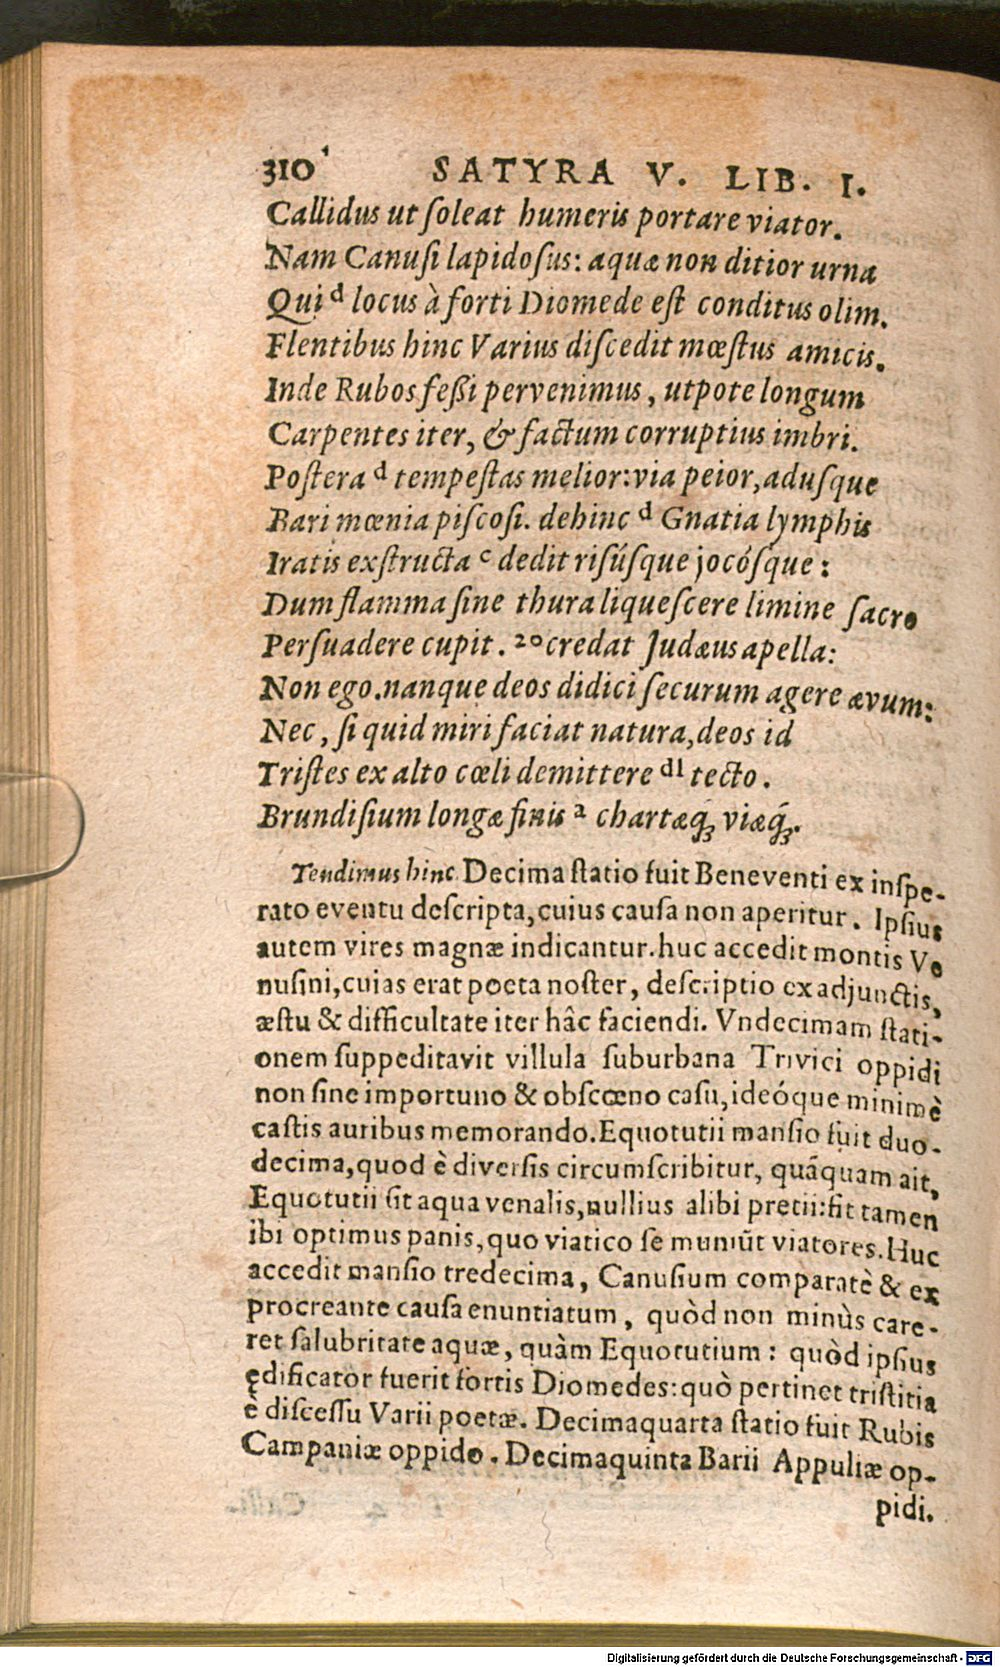 310 SATYRA V. LIB. I.
Callidus ut ſoleat humeris portare viator.
Nam Canuſi lapidoſus: aquæ non ditior urna
Qui d locus à forti Diomede eſt conditus olim.
Flentibus hinc Varius diſcedit mœſtus amicis.
Inde Rubos feßi pervenimus, utpote longum
Carpentes iter, & factum corruptius imbri.
Poſtera d tempeſtas melior: via peior, aduſque
Bari mœnia piſcoſi. dehinc d Gnatia lymphis
Iratis exſtructa c dedit riſúſque jocóſque:
Dum flamma ſine thura liqueſcere limine ſacro
Perſuadere cupit. 20 credat Judæus apella:
Non ego. nanque deos didici ſecurum agere ævum:
Nec, ſi quid miri faciat natura, deos id
Triſtes ex alto cœli demittere dl tecto.
Brunduſium longæ finis a chartæq́; viæq́;.
Tendimus hinc. Decima ſtatio fuit Beneventi ex inſpe-
rato eventu deſcripta, cuius cauſa non aperitur. Ipſius
autem vires magnæ indicantur. huc accedit montis Ve
nuſini, cuias erat poeta noſter, deſcriptio ex adjunctis,
æſtu & difficultate iter hâc faciendi. Vndecimam ſtati-
onem ſuppeditavit villula ſuburbana Trivici oppidi
non ſine importuno & obſcœno caſu, ideóque minimè
caſtis auribus memorando. Equotutii manſio fuit duo-
decima, quod è diverſis circumſcribitur, quãquam ait,
Equotutii ſit aqua venalis, nullius alibi pretii: fit tamen
ibi optimus panis, quo viatico ſe muniũt viatores. Huc
accedit manſio tredecima, Canuſium comparatè & ex
procreante cauſa enuntiatum, quòd non minùs care-
ret ſalubritate aquæ, quàm Equotutium: quòd ipſius
ędificator fuerit fortis Diomedes: quò pertinet triſtitia
è diſceſſu Varii poetæ. Decimaquarta ſtatio fuit Rubis
Campaniæ oppido. Decimaquinta Barii Appuliæ op-
pidi.
Digitalisierung gefördert durch die Deutsche Forschungsgemeinschaft - DFG